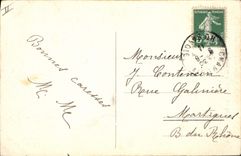 Bonnes caresses
M. M.
Monsieur
J. Contencin
Rue Galinière
Martigues
B. du Rhône